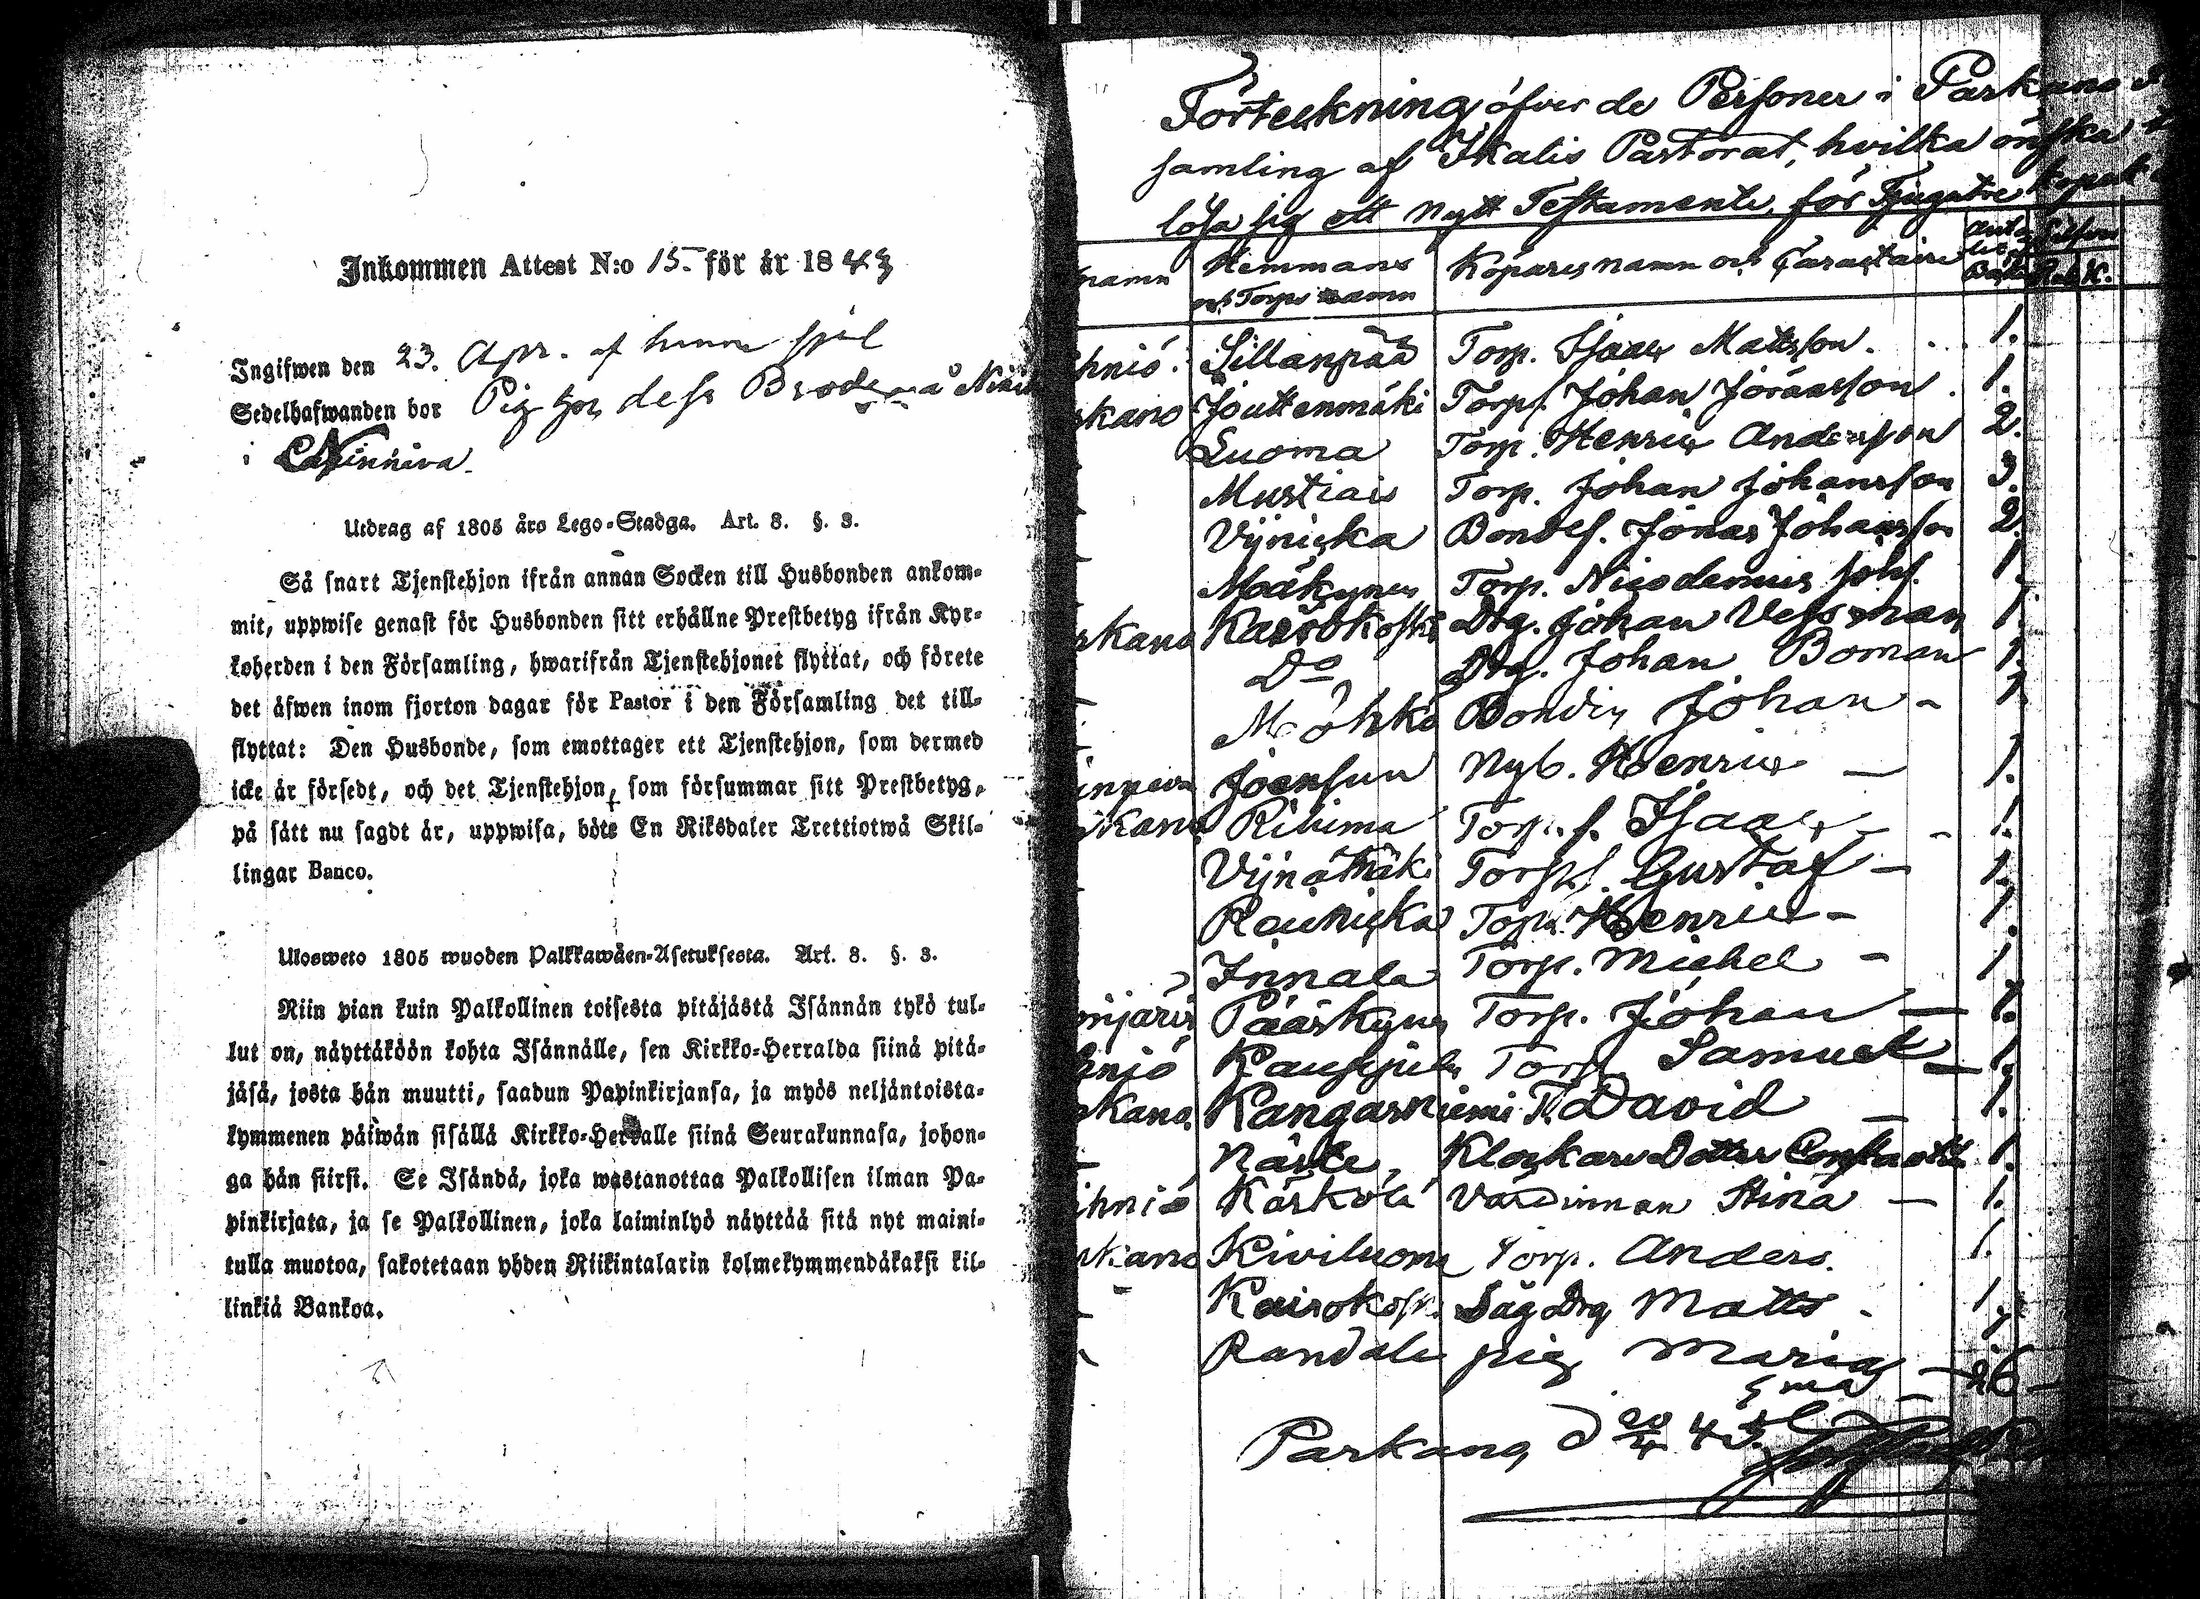 Inkommen Attest N:o 15. för år 1843
Ingifwen den 23. Apr. af henne sjel
Sedelhafwanden bor Pig hos dess Broder å
i
Utdrag af 1805 års Lego-Stadga. Art. 8. §. 3.
Så snart Tjenstehjon ifrån annan Socken till Husbonden ankom-
mit, uppwise genast för Husbonden sitt erhållne Prestbetyg ifrån Kyr-
koherden i den Församling, hwarifrån Tjenstehjonet flyttat, och förete
det äfwen inom fjorton dagar för Pastor i den Församling det till-
flyttat: Den Husbonde, som emottager ett Tjenstehjon, som dermed
icke är försedt, och det Tjenstehjon, som försummar sitt Prestbetyg,
på sätt nu sagdt är, uppwisa, böte En Riksdaler Trettiotwå Skil-
lingar Banco.
Ulosweto 1805 wuoden Palkkawäen-Asetuksesta. Art. 8. §. 3.
Niin pian kuin Palkollinen toisesta pitäjästä Isännän tykö tul-
lut on, näyttäköön kohta Isännälle, sen Kirkko-Herralda siinä pitä-
jäsä, josta hän muutti, saadun Papinkirjansa, ja myös neljäntoista-
kymmenen päiwän sisällä Kirkko-Herralle siinä Seurakunnasa, johon-
ga hän siirsi. Se Isändä, joka wastanottaa Palkollisen ilman Pa-
pinkirjata, ja se Palkollinen, joka laiminlyö näyttää sitä nyt maini-
tulla muotoa, sakotetaan yhden Riikintalarin kolmekymmendäkaksi kil-
linkiä Bankoa.
Förteckning öfver de Personer i Parkano
samling af Ikalis Pastorat, hvilka önska
lösa sig ett Nytt Testamente, för Tjugutre kopek
namn Hemmans och Torps namn Köpares namn och Caractaire
hniö. Sillanpää Torp. Isaac Mattsson. 1.
rkano Jouttenmäki Torps. Johan Joraasson 1.
Luoma Torp. Henric Andersson 2.
Mustiais Torp. Johan Johansson 3.
Vijnicka Bondes. Jonas Johansson 2.
Mäkynen Torp. Nicodemus Johs. 1.
rkano Kairokoski Drg. Johan Vessman 1.
Do Drg. Johan Boman 1.
Möhkö Bonden Johan - 1.
Joensuu Nyb. Henric - 1.
rkano Riihima Torp. s. Isaac - 1.
Vijnämäki Torps. Gustaf - 1.
Raunicka Torp. Henric - 1.
Innala Torp. Michel - 1
njärvi Pääskynen Torp. Johan - 1.
hniö Torp. Samuel - 1.
rkano. Kangasniemi T. David - 1.
Närke, Klockare Dotter 1.
ihniö Kärkölä Värdinnan Stina - 1.
rkano Kiviluoma Torp. Anders. 1.
Kairokosk. Såg Drg Matts - 1.
Randale pig Maria - 1.
Sma 26
Parkano d 20/4 43.